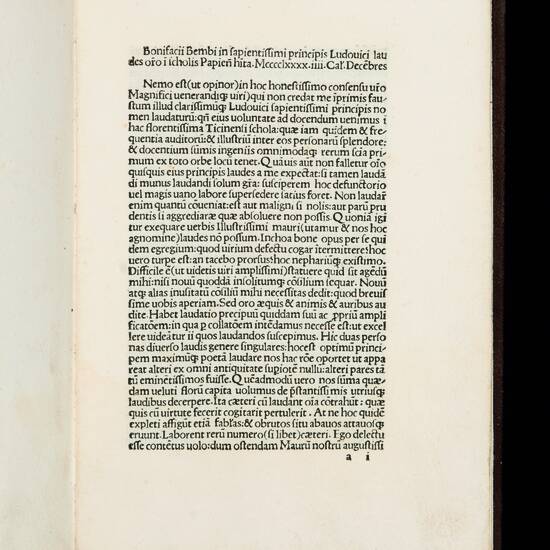 Bonifacii Bembi in sapientissimi principis Ludouici lau
des oro i scholis Papien hita. Mcccclxxxx.iiii. Cal. Decēbres
Nemo est(ut opinor)in hoc honestissimo consensu uro
Magnifici uenerandiq; uiri)qui non credat me iprimis fau
stum illud clarissimūq; Ludouici sapientissimi principis no
men laudaturū: qñ eius uoluntate ad docendum uenimus i
hac florentissima Ticinensi schola: quæ iam quidem & fre
quentia auditorū: & illustriū inter eos personarū splendore:
& docentium sūmis ingeniis omnimodaq; rerum sciā pri
mum ex toto orbe locū tenet. Quāuis aut non falletur oīo
quisquis eius principis laudes a me expectat: si tamen laudā
di munus laudandi solum gīa: susciperem hoc defunctorio
uel magis uano labore supersedere satius foret. Non laudan
enim quantū cōueniat: est aut maligni si nolis: aut parū pru
dentis si aggrediaræ quæ absoluere non possis. Quoniā igi
tur exequare uerbis Illustrissimi mauri(utamur & nos hoc
agnomine)laudes nō possum. Inchoa bone opus per se qui
dem egregium: quod uirium defectu cogar itermittere: hoc
uero turpe est: an tacebo prorsus: hoc nephariūq; existimo.
Difficile ē(ut uidetis uiri amplissimi)statuere quid sit agēdū
mihi: nisi nouū quoddā insolitumq; cōsilium sequar. Nouū
atq; alias inusitatū cōsiliū mihi necessitas dedit: quod breuif
sime uobis aperiam. Sed oro æquis & animis & auribus au
dite. Habet laudatio precipuū quiddam suū ac ppriū ampli
ficatōem: in qua p collatōem intēdamus necesse est: ut excel
lere uideātur ii quos laudandos suscepimus. Hic duas perso
nas diuerso laudis genere singulares: hocest optimū princi
pem maximūq; poetā laudare nos hac rōe oportet ut appa
reat alteri ex omni antiquitate supiotē nullū: alteri pares tā
tū eminētissimos fuisse. Quēadmodū uero nos sūma quæ
dam ueluti florū capita uolumus de pstantissimis utriusq;
laudibus decerpere. Ita cæteri cū laudant oīa cōtrahūt: quæ
quis cū uirtute fecerit cogitarit pertulerit. At ne hoc quidē
expleti affigūt etiā fablas: & obrutos situ abauos attauosq;
eruunt. Laborent rerū numero(si libet)cæteri. Ego delectu
esse contētus uolo: dum ostendam Maurū nostrū augustissi
a i